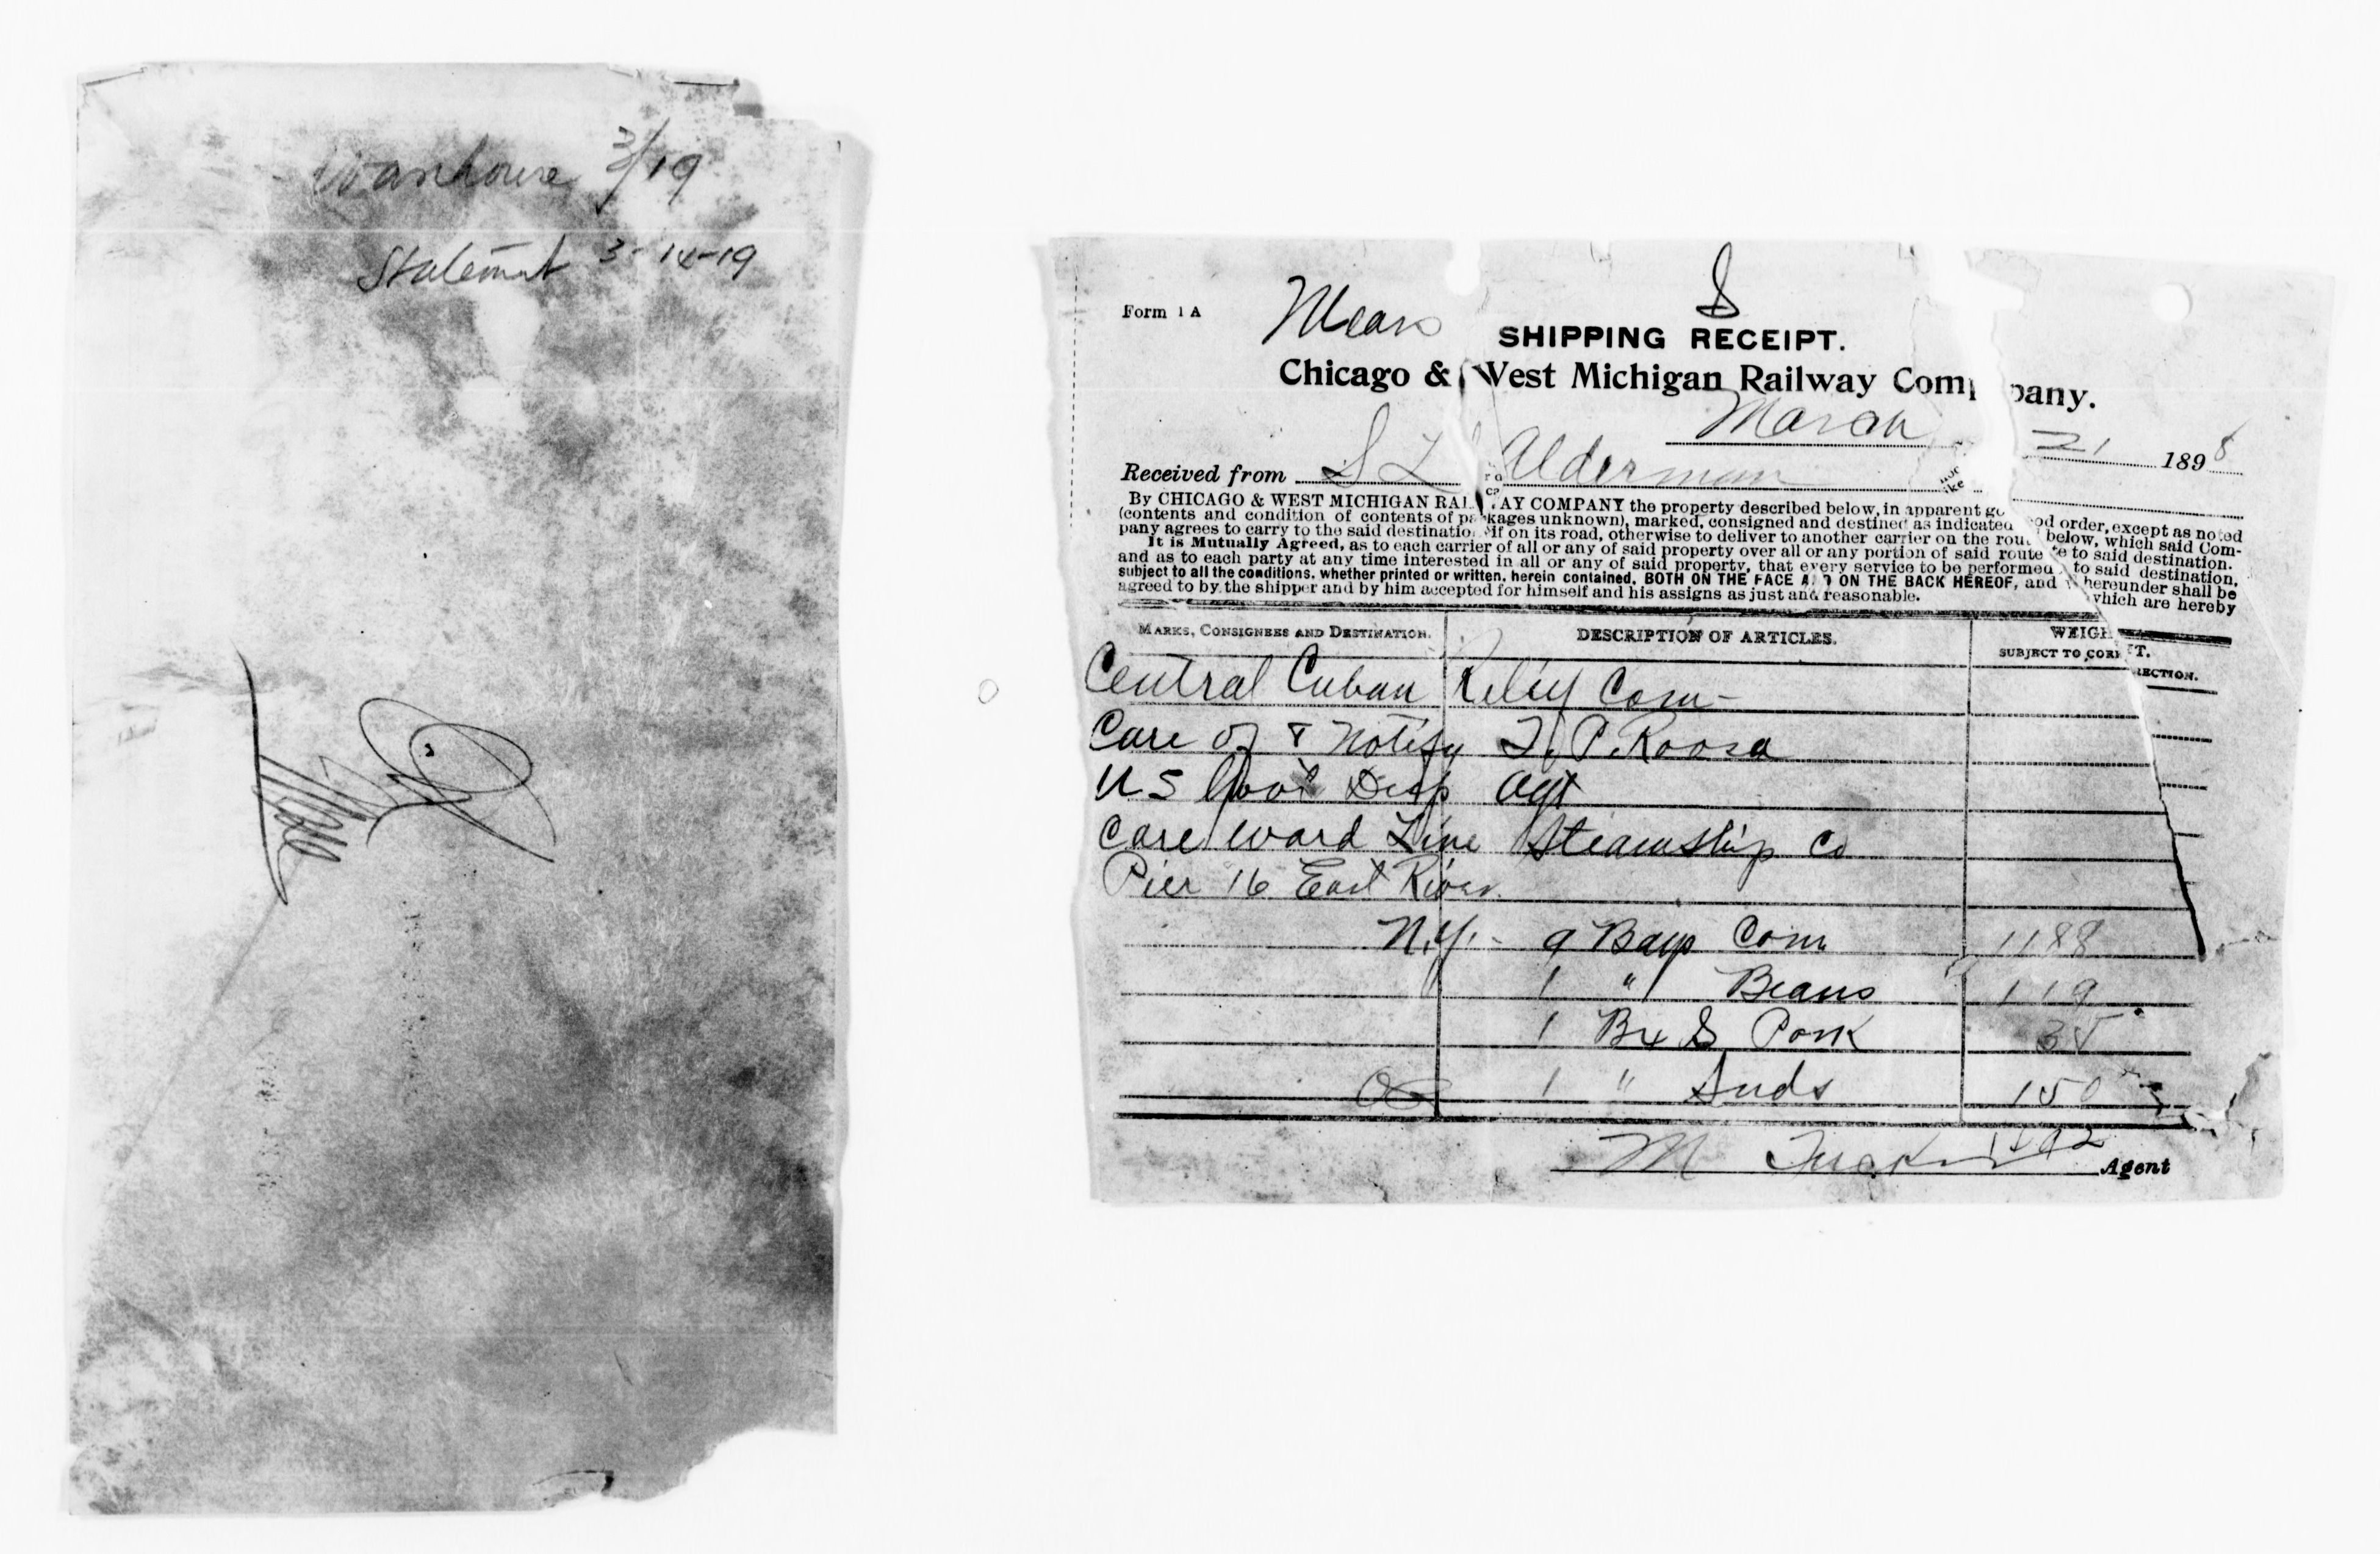 Warehouse 3/19
Statement 3-14-19
Form 1 A
Mears
S
SHIPPING RECEIPT.
Chicago & West Michigan Railway Company.
March 21 1898
Received from S L Alderman
By CHICAGO & WEST MICHIGAN RAI AY COMPANY the property described below, in apparent go od order, except as noted
(contents and condition of contents of packages unknown), marked, consigned and destined as indicated below, which said Com-
pany agrees to carry to the said destination if on its road, otherwise to deliver to another carrier on the route to said destination.
It is Mutually Agreed, as to each carrier of all or any of said property over all or any portion of said route to said destination,
and as to each party at any time interested in all or any of said property, that every service to be performed hereunder shall be
subject to all the conditions, whether printed or written, herein contained, BOTH ON THE FACE AND ON THE BACK HEREOF, and which are hereby
agreed to by the shipper and by him accepted for himself and his assigns as just and reasonable.
MARKS, CONSIGNEES AND DESTINATION. DESCRIPTION OF ARTICLES. WEIGHT.
SUBJECT TO CORRECTION.
Central Cuban Relief Com-
Care of & Notify F. P. Roosa
U S Govt Disp Agt
Care Ward Line Steamship Co
Pier 16 East River
N.Y. - 9 Bags Corn 1188
1 " Beans 119
1 Bx S Pork 35
1 " Suds 150
M Tucker 1492 Agent